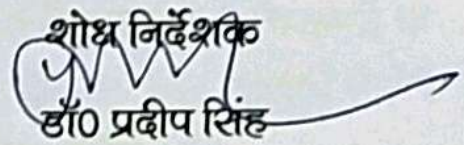 शोध निर्देशक
डॉ0 प्रदीप सिंह